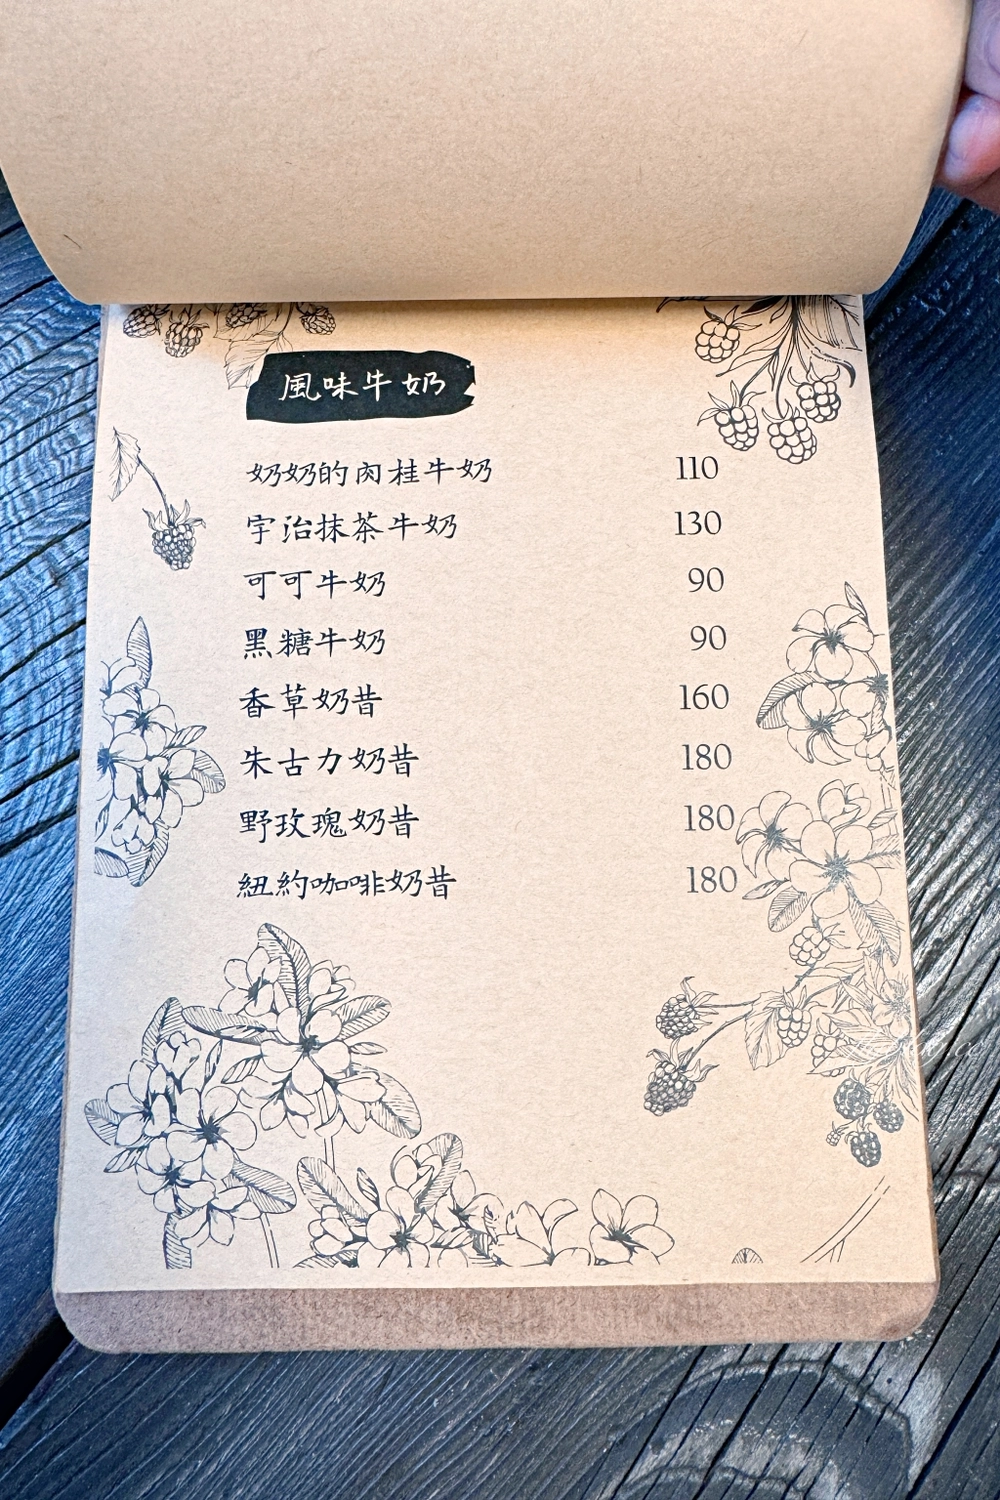 風味牛奶
奶奶的肉桂牛奶 110
宇治抹茶牛奶 130
可可牛奶 90
黑糖牛奶 90
香草奶昔 160
朱古力奶昔 180
野玫瑰奶昔 180
紐約咖啡奶昔 180